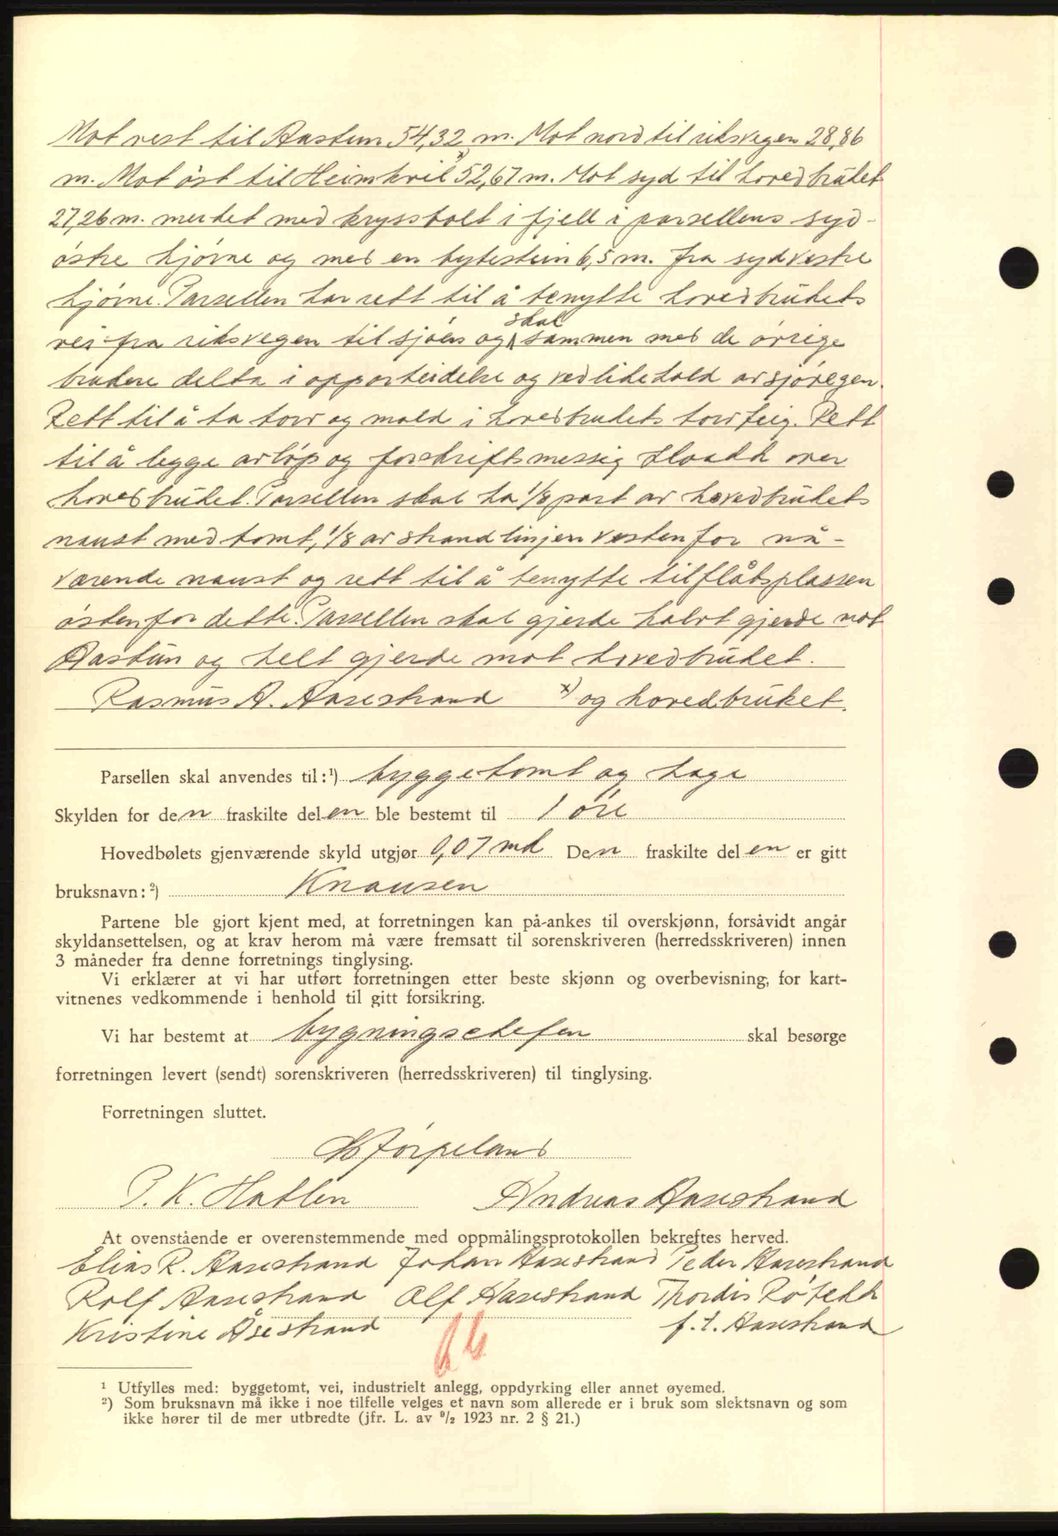 Mot vest til Aastun 54,32 m. Mot nord til riksvegen 28,86
m. Mot øst til Heimhvil x) 52,67 m. Mot syd til hovedbruket
27,26 m. merket med kryssbolt i fjell i parsellens syd-
østre hjørne og med en bytestein 6,5 m. fra sydvestre
hjørne. Parsellen har rett til å benytte hovedbrukets
vei fra riksvegen til sjøen og skal sammen med de øvrige
brukere delta i opparbeidelse og vedlikehold av sjøvegen.
Rett til å ta torv og mold i hovedbrukets torvteig. Rett
til å legge avløp og forskriftsmessig kloakk over
hovedbruket. Parsellen skal ha 1/8 part av hovedbrukets
naust med tomt, 1/8 av strandlinjen vestenfor nå-
værende naust og rett til å benytte tilflåtsplassen
østenfor dette. Parsellen skal gjerde halvt gjerde mot
Aastun og helt gjerde mot hovedbruket.
Rasmus A. Aasestrand x) og hovedbruket.
Parsellen skal anvendes til: ¹) byggetomt og hage
Skylden for den fraskilte delen ble bestemt til 1 øre
Hovedbølets gjenværende skyld utgjør 0,07 md Den fraskilte delen er gitt
bruksnavn: ²) Knausen
Partene ble gjort kjent med, at forretningen kan på-ankes til overskjønn, forsåvidt angår
skyldansettelsen, og at krav herom må være fremsatt til sorenskriveren (herredsskriveren) innen
3 måneder fra denne forretnings tinglysing.
Vi erklærer at vi har utført forretningen etter beste skjønn og overbevisning, for kart-
vitnenes vedkommende i henhold til gitt forsikring.
Vi har bestemt at bygningschefen skal besørge
forretningen levert (sendt) sorenskriveren (herredsskriveren) til tinglysing.
Forretningen sluttet.
Jørpeland
P. K. Hatlen Andreas Aasestrand
At ovenstående er overenstemmende med oppmålingsprotokollen bekreftes herved.
Elias R. Aasestrand Johan Aasestrand Peder Aasestrand
Rolf Aasestrand Alf Aasestrand Thordis Røtedt
Kristine Åsestrand f. t. Aasestrand
¹ Utfylles med: byggetomt, vei, industrielt anlegg, oppdyrking eller annet øyemed.
²) Som bruksnavn må ikke i noe tilfelle velges et navn som allerede er i bruk som slektsnavn og som
ikke hører til de mer utbredte (jfr. L. av 9/2 1923 nr. 2 § 21.)